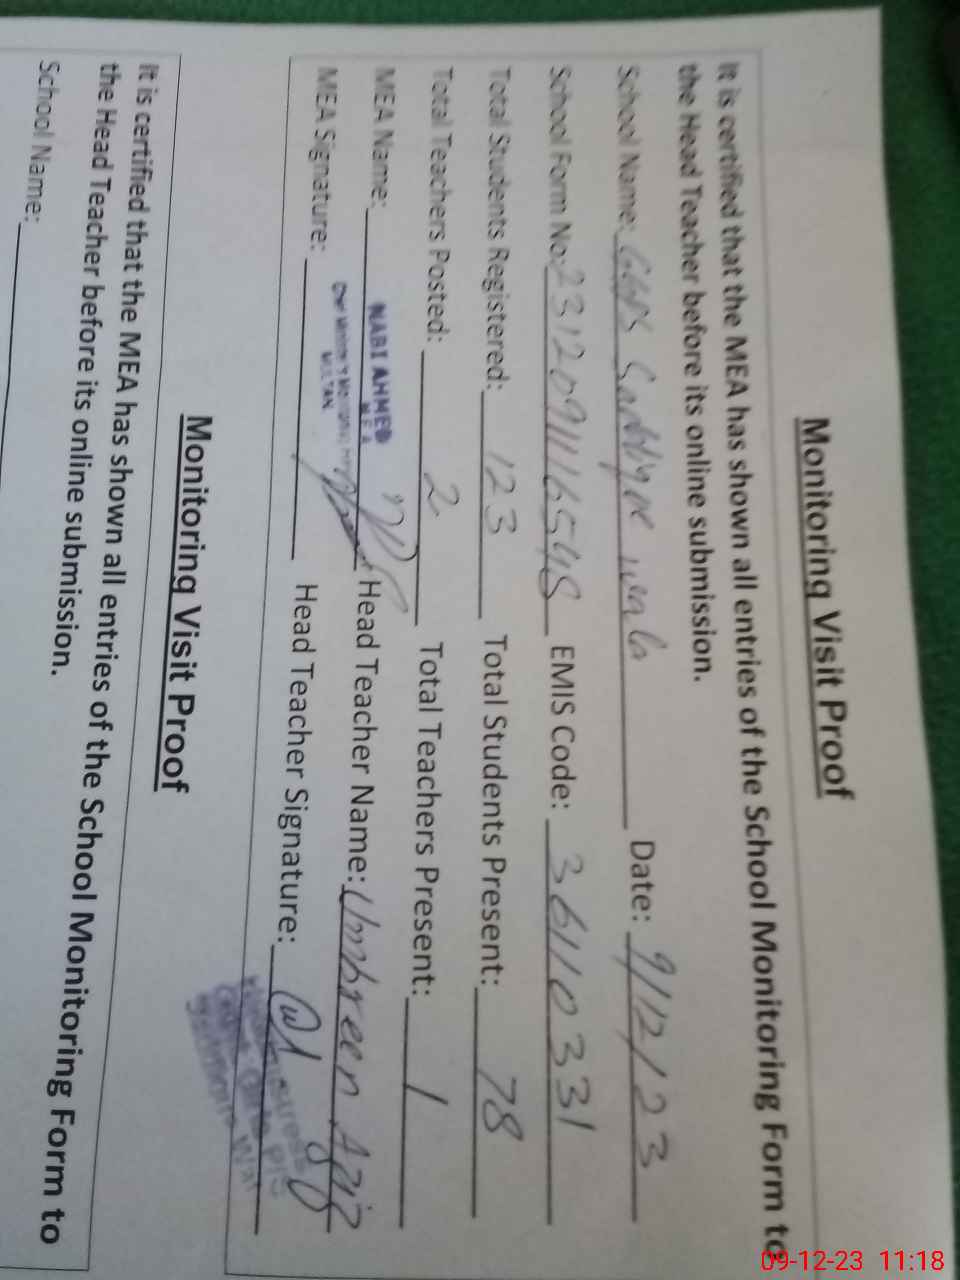 Monitoring Visit Proof
It is certified that the MEA has shown all entries of the School Monitoring Form to
the Head Teacher before its online submission.
School Name: GGPS wala Date: 9/12/23
School Form No: 231209111654S EMIS Code: 36110331
Total Students Registered: 123 Total Students Present: 78
Total Teachers Posted: 2 Total Teachers Present: 1
MEA Name: NABI AHMED Head Teacher Name: Umbreen Aziz
M E A
MULTAN
MEA Signature: Head Teacher Signature:
Monitoring Visit Proof
It is certified that the MEA has shown all entries of the School Monitoring Form to
the Head Teacher before its online submission.
School Name:
09-12-23 11:18